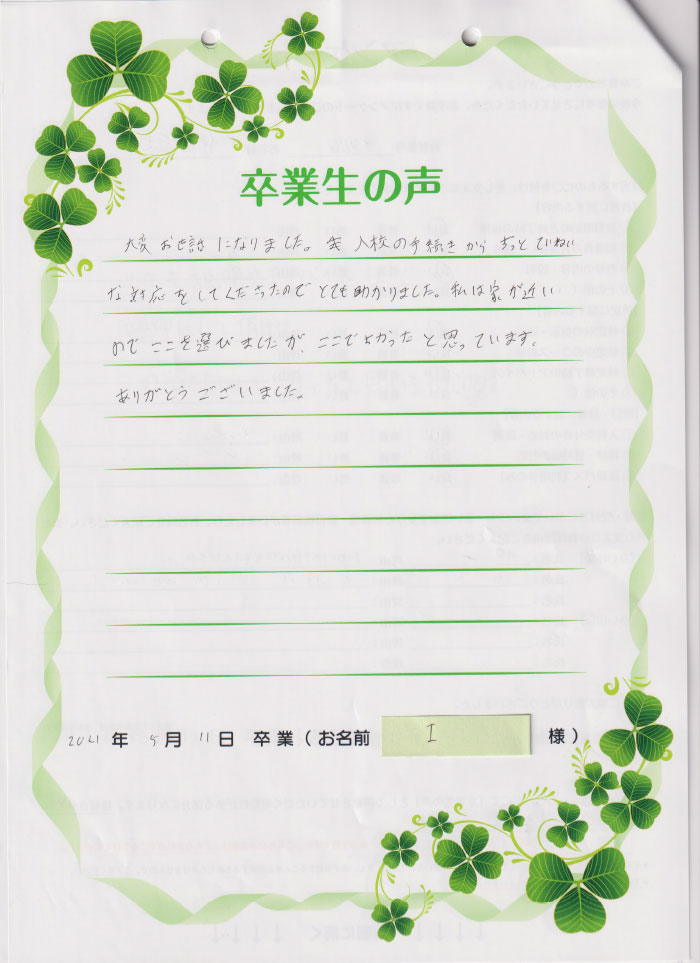 卒業生の声
大変お世話になりました。入校の手続きからずっとていねい
な対応をしてくださったのでとても助かりました。私は家が近い
のでここを選びましたが、ここでよかったと思っています。
ありがとうございました。
2021年 5月 11日 卒業(お名前 I 様)